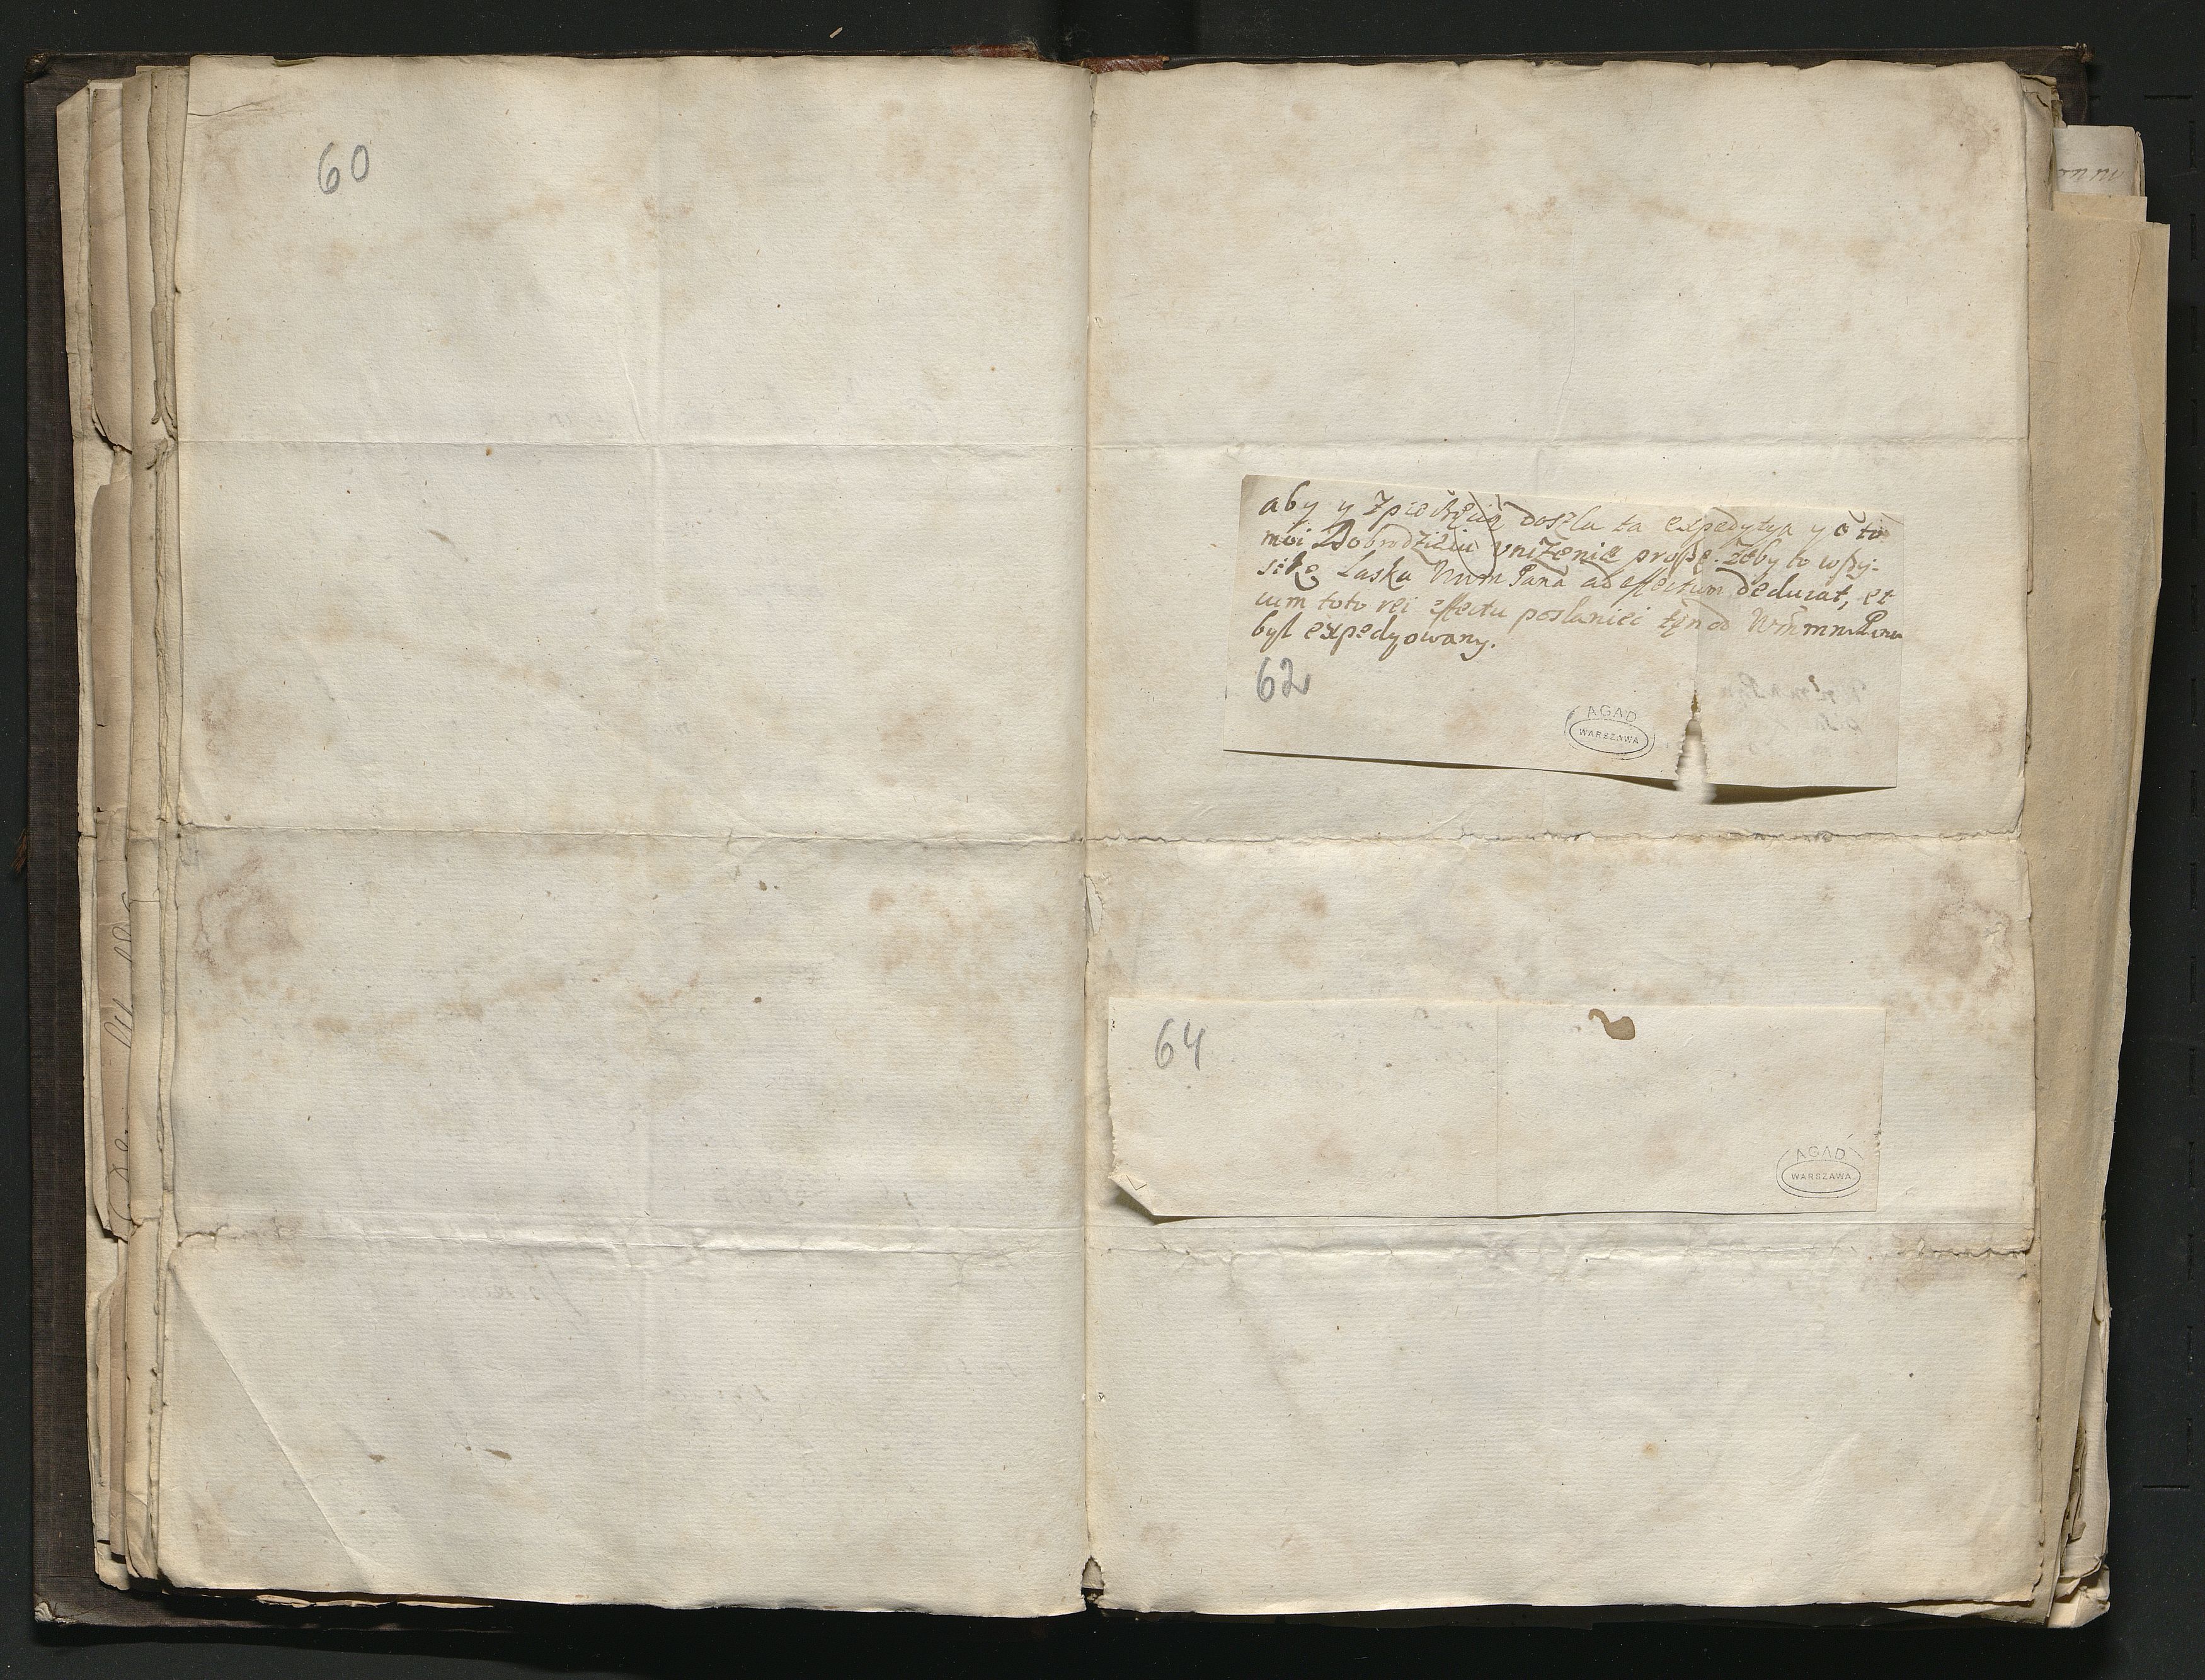 60
aby y z pieczęcią doszla ta expedytya y o to
moi Dobrodzieiu vniżenie proszę. żeby to wszy-
stko Laska Wmm Pana ad effectum deducat, et
cum toto rei effectu poslaniec tęn od Wmmm Pana
byl expedyowany.
62
AGAD
WARSZAWA
64
AGAD
WARSZAWA